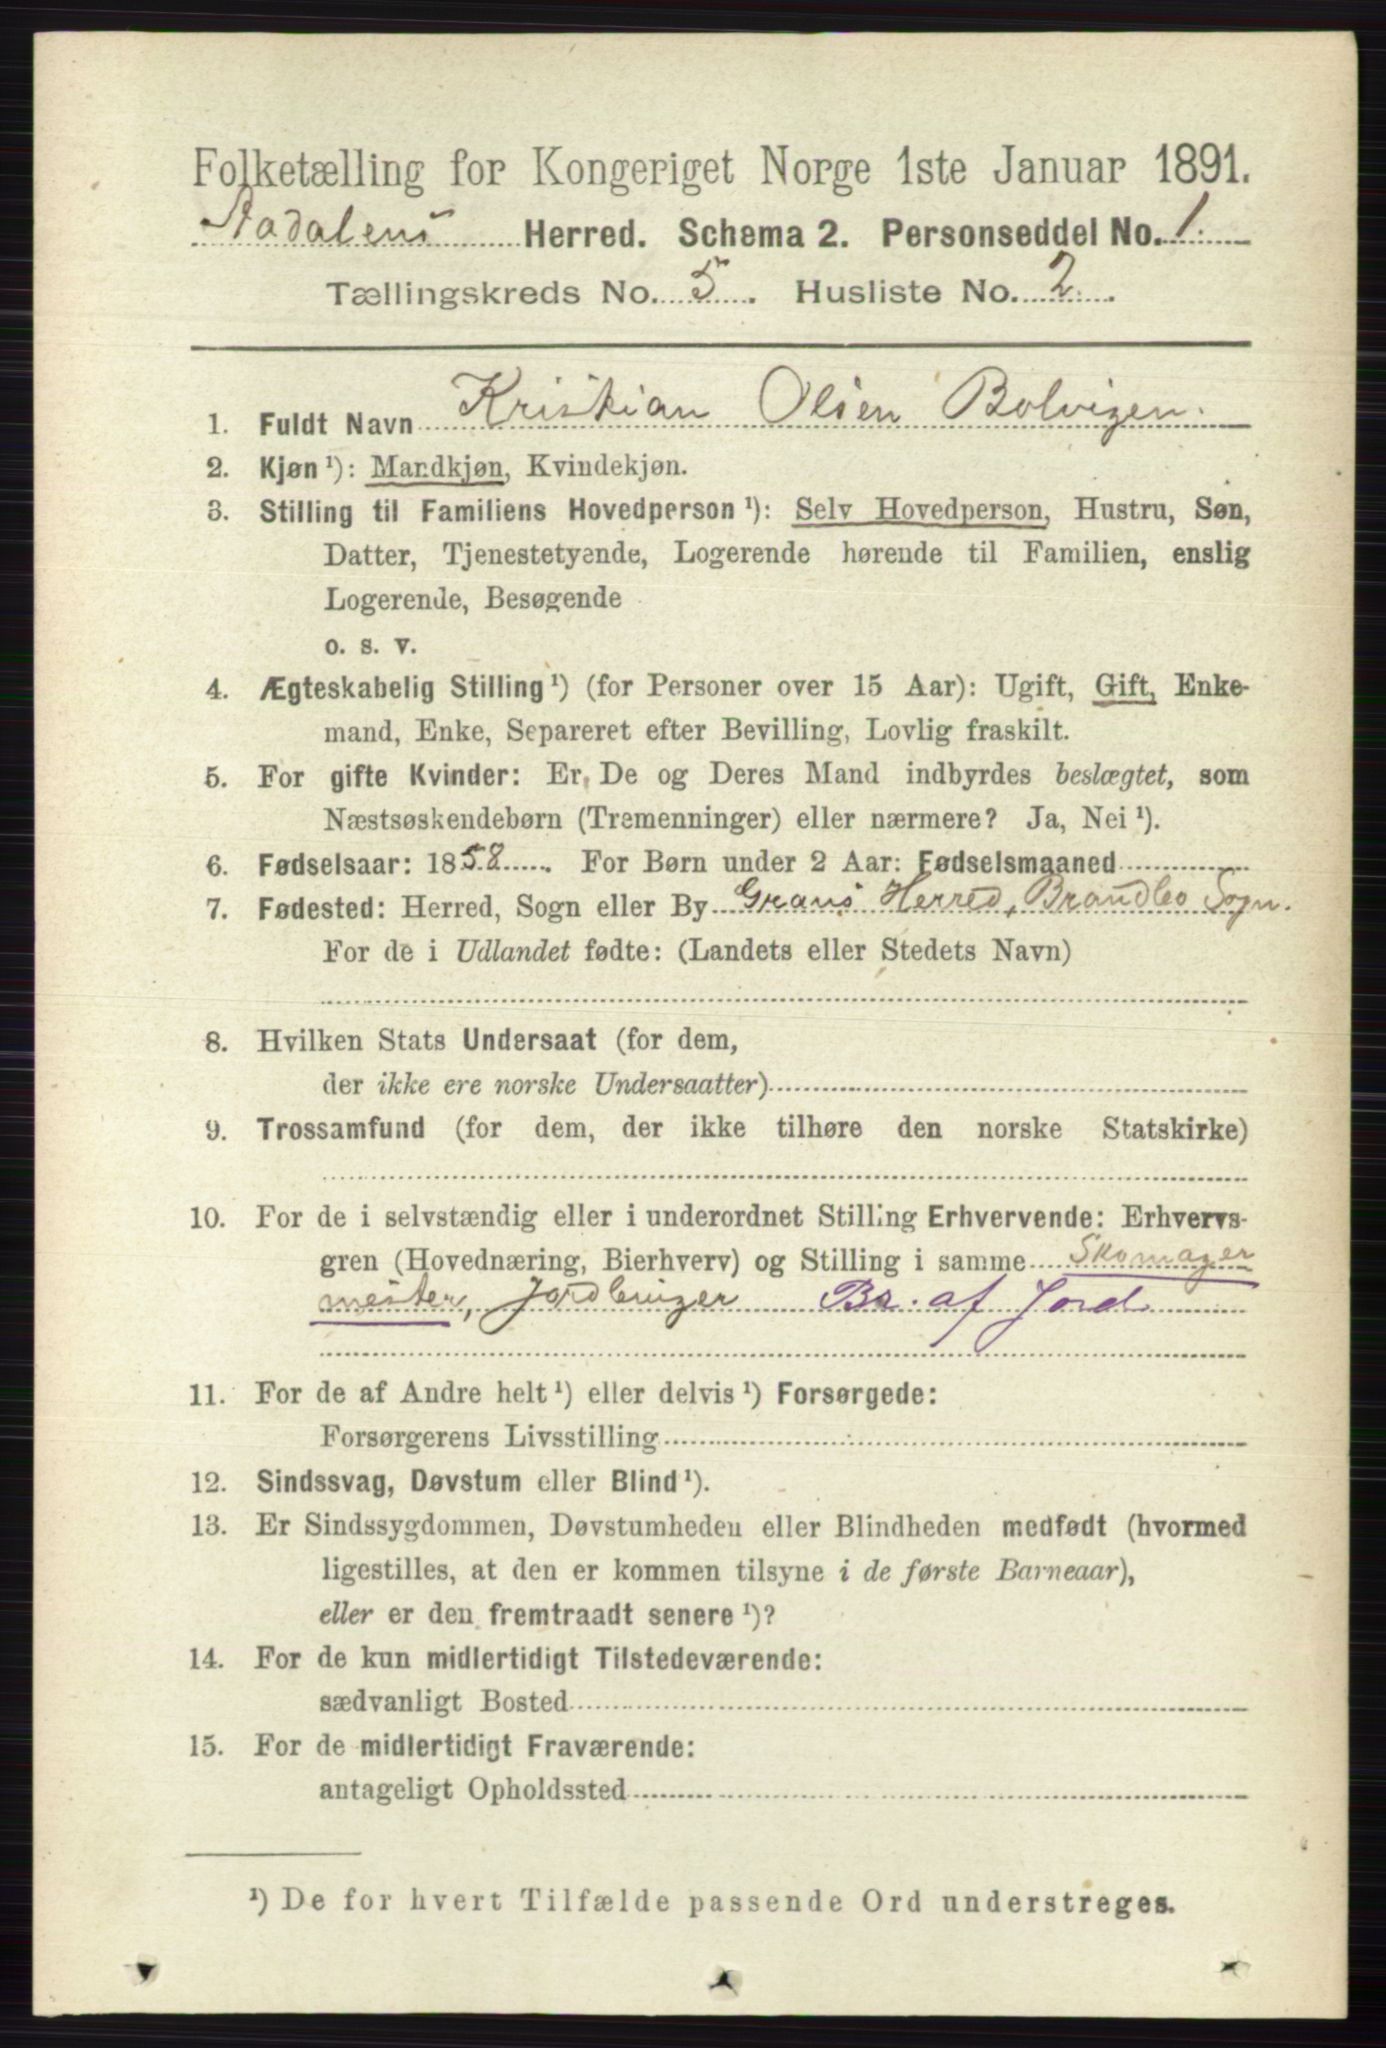 Folketælling for Kongeriget Norge 1ste Januar 1891.
Aadalens Herred. Schema 2. Personseddel No. 1.
Tællingskreds No. 5. Husliste No. 2.
1. Fuldt Navn Kristian Olsen Bolvigen.
2. Kjøn ¹): Mandkjøn, Kvindekjøn.
3. Stilling til Familiens Hovedperson ¹): Selv Hovedperson, Hustru, Søn,
Datter, Tjenestetyende, Logerende hørende til Familien, enslig
Logerende, Besøgende
o. s. v.
4. Ægteskabelig Stilling ¹) (for Personer over 15 Aar): Ugift, Gift, Enke-
mand, Enke, Separeret efter Bevilling, Lovlig fraskilt.
5. For gifte Kvinder: Er De og Deres Mand indbyrdes beslægtet, som
Næstsøskendebørn (Tremenninger) eller nærmere? Ja, Nei ¹).
6. Fødselsaar: 1858. For Børn under 2 Aar: Fødselsmaaned
7. Fødested: Herred, Sogn eller By Grans Herred, Brandbo Sogn.
For de i Udlandet fødte: (Landets eller Stedets Navn)
8. Hvilken Stats Undersaat (for dem,
der ikke ere norske Undersaatter)
9. Trossamfund (for dem, der ikke tilhøre den norske Statskirke)
10. For de i selvstændig eller i underordnet Stilling Erhvervende: Erhvervs-
gren (Hovednæring, Bierhverv) og Stilling i samme Skomager
mester, Jordbruger Br. af Jord
11. For de af Andre helt ¹) eller delvis ¹) Forsørgede:
Forsørgerens Livsstilling
12. Sindssvag, Døvstum eller Blind ¹).
13. Er Sindssygdommen, Døvstumheden eller Blindheden medfødt (hvormed
ligestilles, at den er kommen tilsyne i de første Barneaar),
eller er den fremtraadt senere ¹)?
14. For de kun midlertidigt Tilstedeværende:
sædvanligt Bosted
15. For de midlertidigt Fraværende:
antageligt Opholdssted
¹) De for hvert Tilfælde passende Ord understreges.